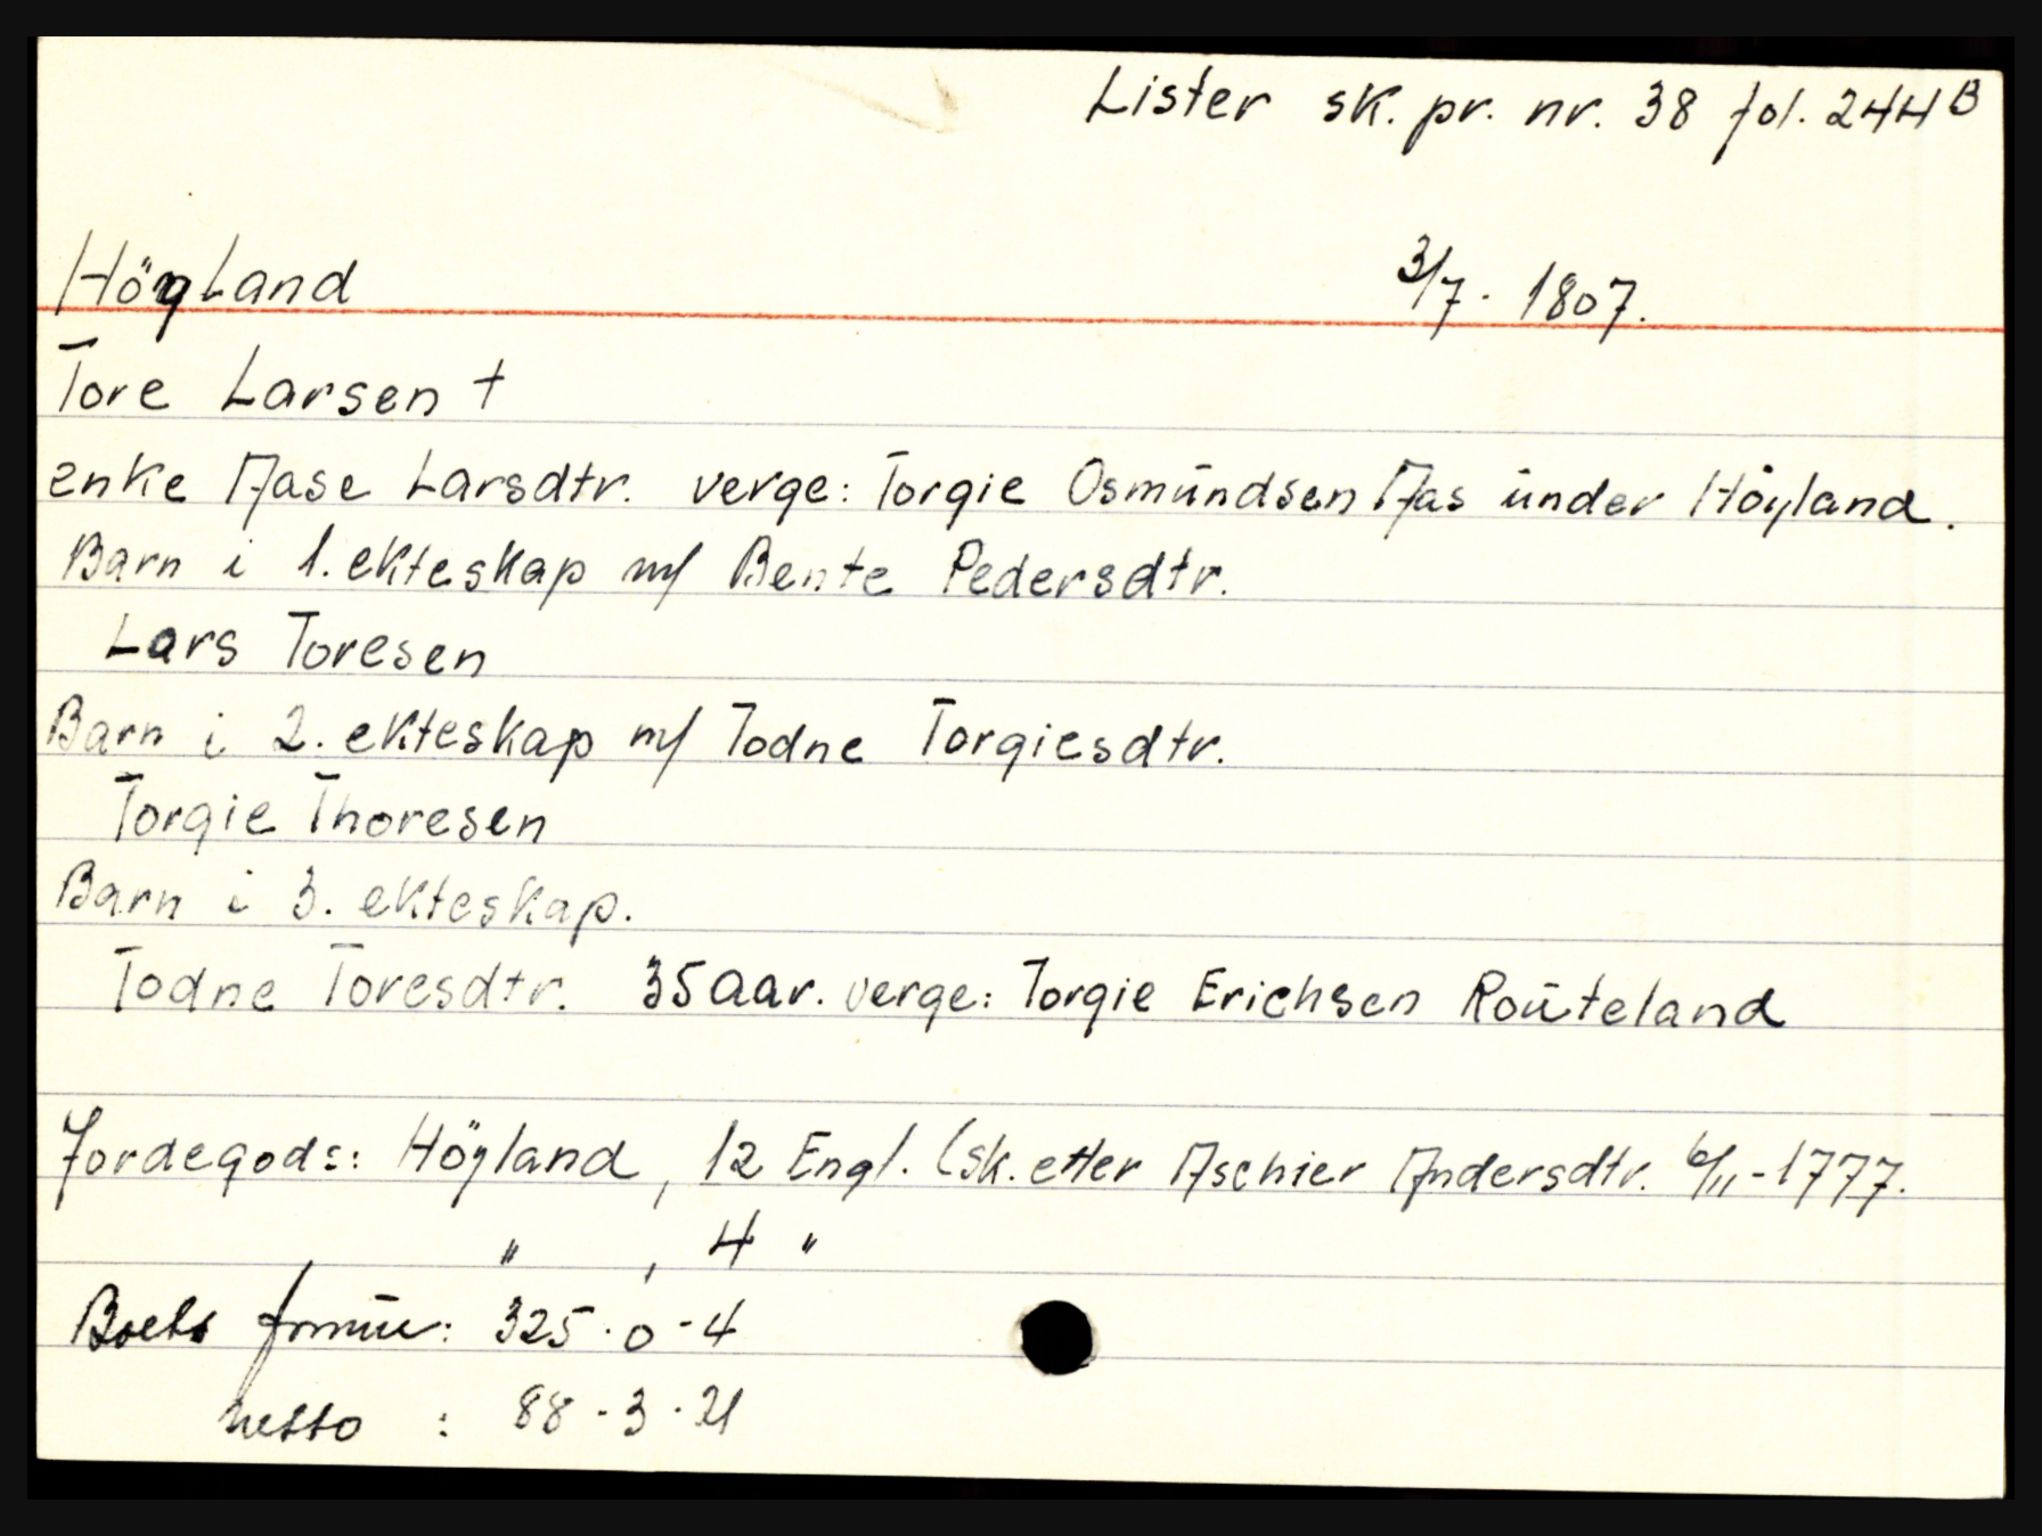 Lister sk. pr. nr. 38 fol. 244 B
Höyland 3/7. 1807.
Tore Larsen †
enke Aase Larsdtr. verge: Torgie Osmundsen Aas under Höyland.
Barn i 1. ekteskap m/ Bente Pedersdtr.
Lars Toresen
Barn i 2. ekteskap m/ Todne Torgiesdtr.
Torgie Thoresen
Barn i 3. ekteskap.
Todne Toresdtr. 35 aar. verge: Torgie Erichsen Routeland
Jordegods: Höyland, 12 Engl. (sk. etter Aschier Andersdtr. 6/11-1777.
" , 4 "
Boets formue: 325-0-4
netto : 88-3-21